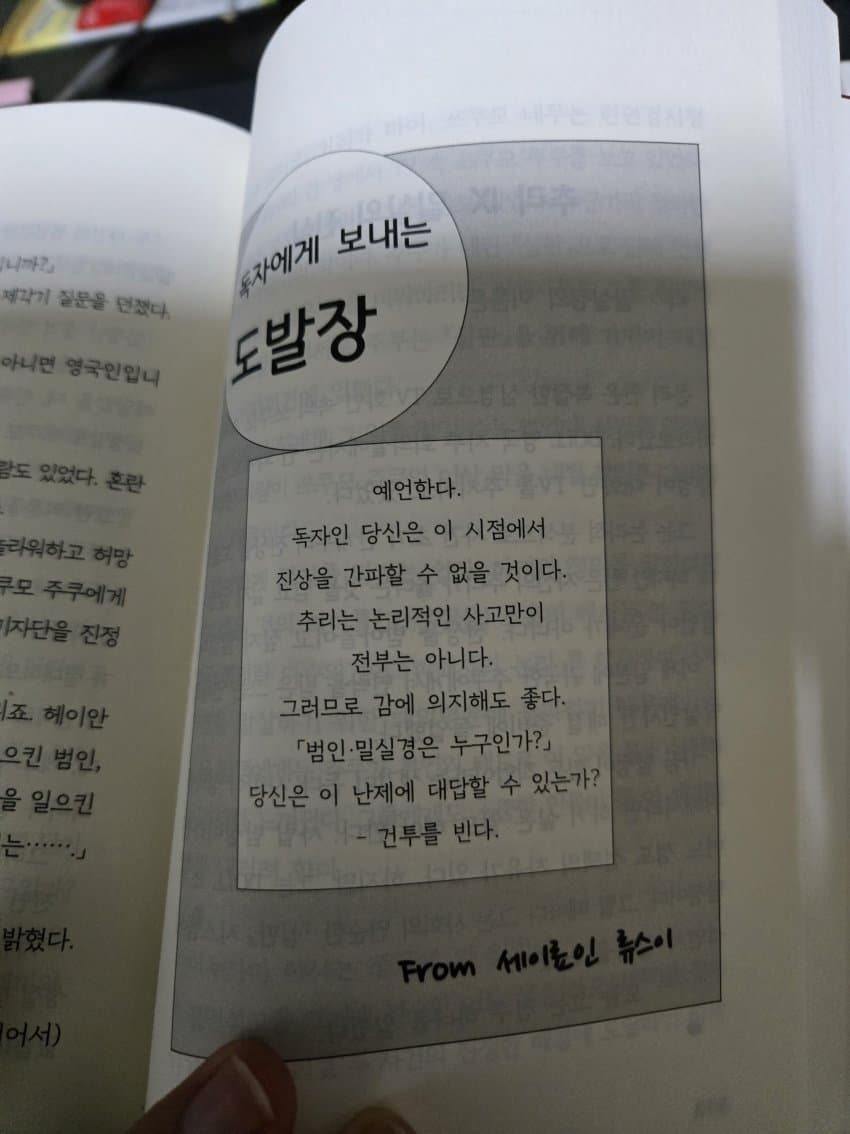 니까?」
제각기 질문을 던졌다.
아니면 영국인입니
람도 있었다. 혼란
놀라워하고 허망
쿠모 주쿠에게
기자단을 진정
죠. 헤이안
으킨 범인,
을 일으킨
는…….」
밝혔다.
어서)
독자에게 보내는
도발장
예언한다.
독자인 당신은 이 시점에서
진상을 간파할 수 없을 것이다.
추리는 논리적인 사고만이
전부는 아니다.
그러므로 감에 의지해도 좋다.
「범인·밀실경은 누구인가?」
당신은 이 난제에 대답할 수 있는가?
- 건투를 빈다.
From 세이료인 류스이